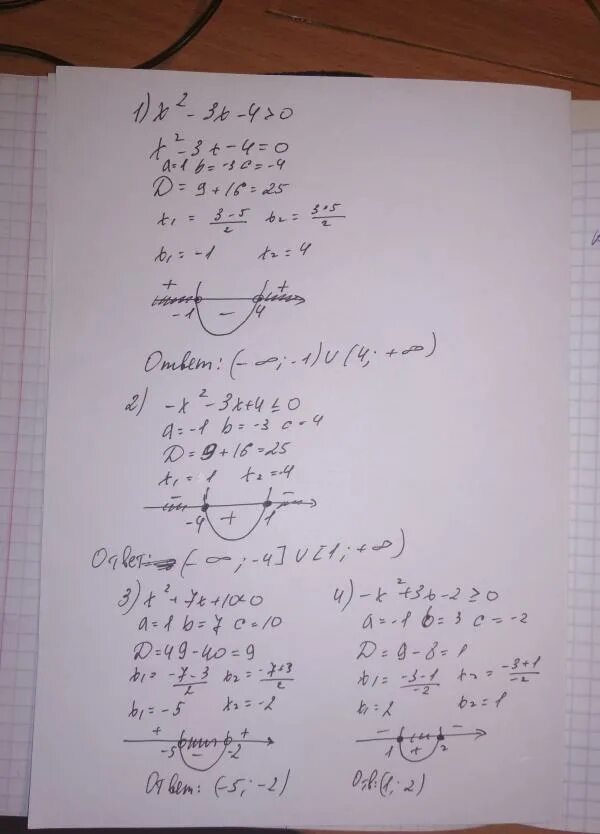 1) x² - 3x - 4 > 0
x² - 3x - 4 = 0
a=1 b=-3 c=-4
D = 9+16=25
x₁ = (3-5)/2 x₂ = (3+5)/2
x₁ = -1 x₂ = 4
+ - +
-1 4
Ответ: (-∞; -1) ∪ (4; +∞)
2) -x² - 3x+4 ≤ 0
a=-1 b=-3 c=4
D = 9+16=25
x₁ = 1 x₂ = -4
- + -
-4 1
Ответ: (-∞; -4] ∪ [1; +∞)
3) x² + 7x+10<0
a=1 b=7 c=10
D=49-40=9
x₁= (-7-3)/2 x₂= (-7+3)/2
x₁=-5 x₂=-2
+ - +
-5 -2
Ответ: (-5; -2)
4) -x²+3x-2 ≥ 0
a=-1 b=3 c=-2
D=9-8=1
x₁= (-3-1)/-2 x₂= (-3+1)/-2
x₁=2 x₂=1
- + -
1 2
Отв: (1; 2)